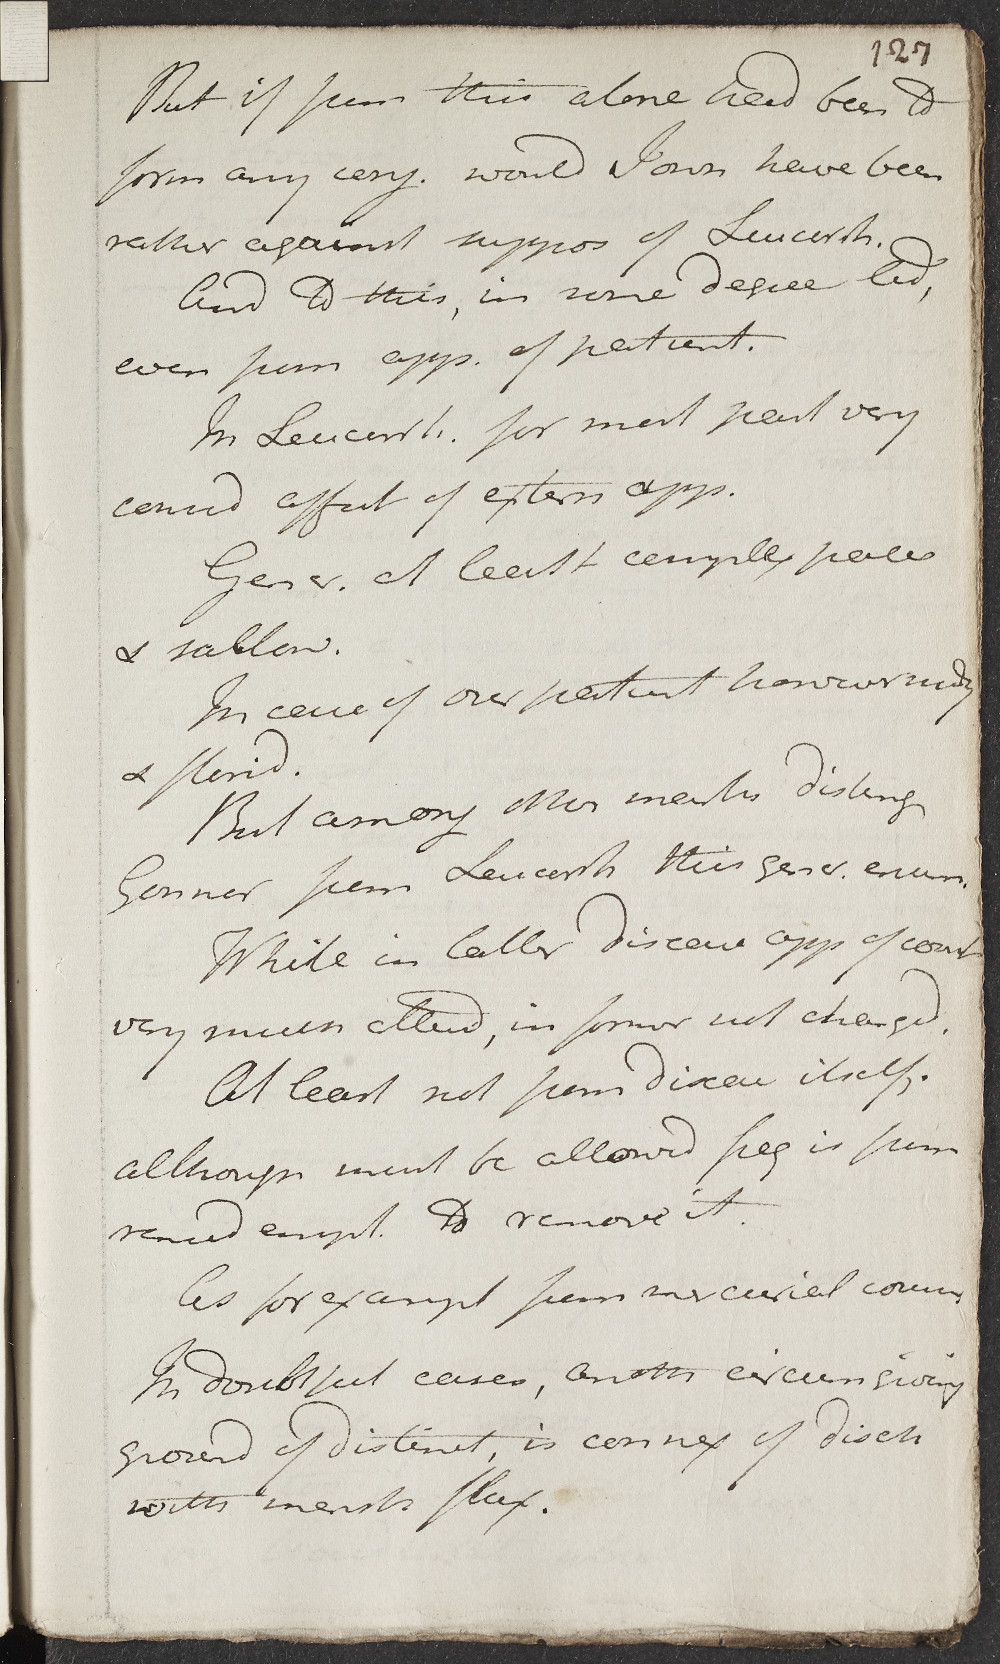 127
But if from this alone had been to
form any conj. would I own have been
rather against suppos of Leucorrh.
And to this, in some degree led,
even from app. of patient.
In Leucorrh. for most part very
consid affect of extern app.
Gener. at least complex pale
& sallow.
In case of our patient however ruddy
& florid.
But among other marks disting
Gonnor from Leucorrh this gener. enum.
While in latter disease app of count
very much altered, in former not changed.
At least not from disease itself.
although must be allowed freq is from
remed empl. to remove it.
As for exampl from mercurial course
In doubtful cases, anoth circum giving
ground of distinct, is connex of disch
with menstr flux.